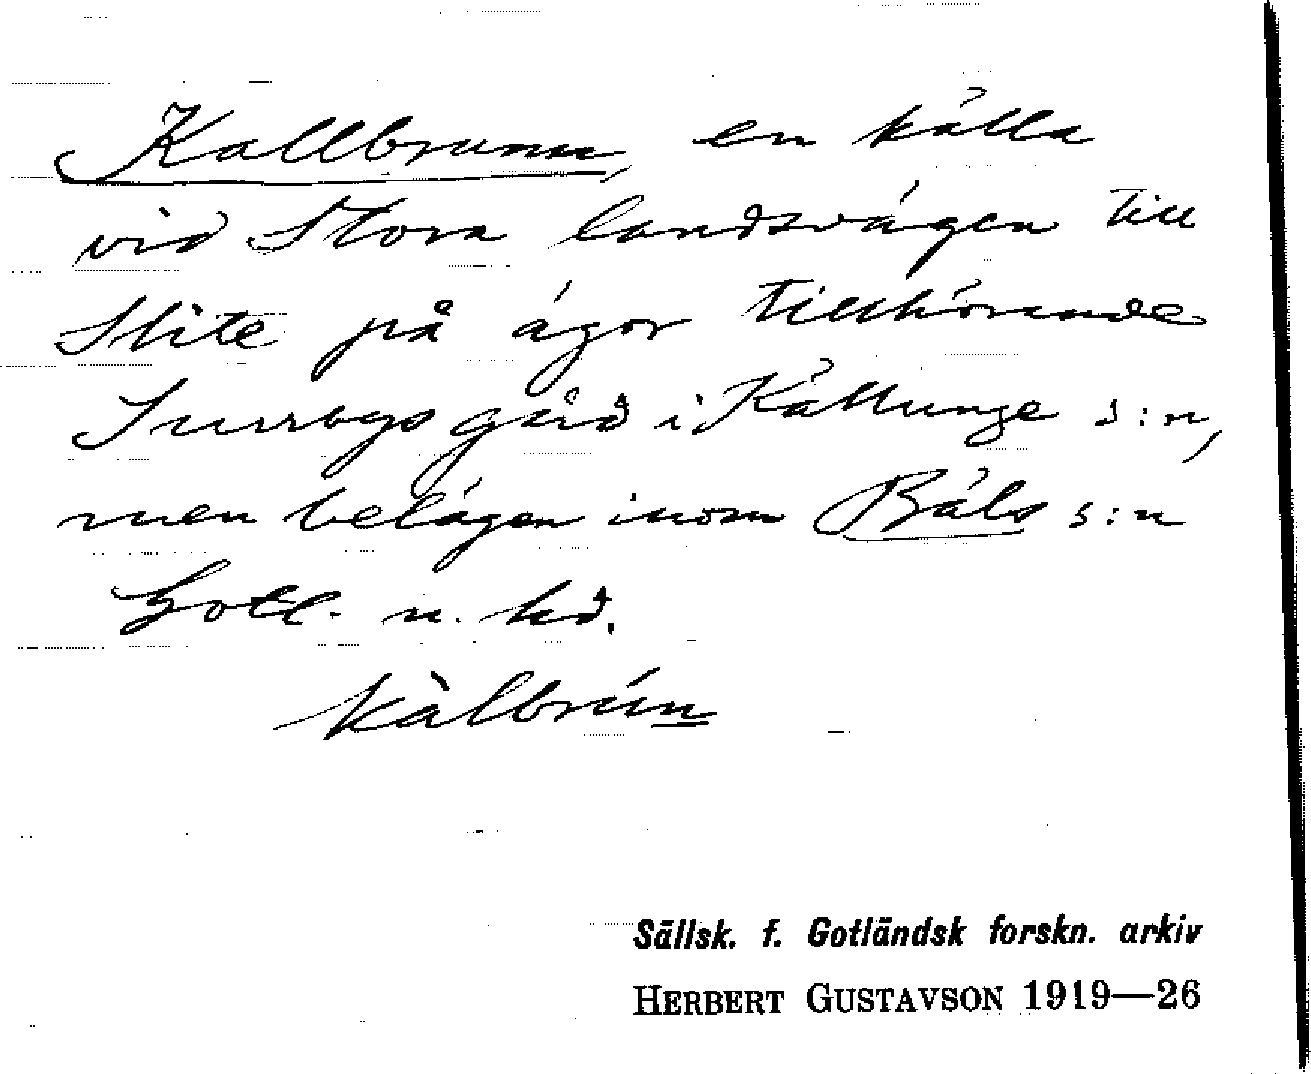 Kallbrunn, en källa
vid Stora landsvägen till
Slite på ägor tillhörande
Suorbys gård i Källunge s:n,
men belägen inom Bäls s:n
Gotl. n. hd.
kàlbrún
Sällsk. f. Gotländsk forskn. arkiv
HERBERT GUSTAVSON 1919—26